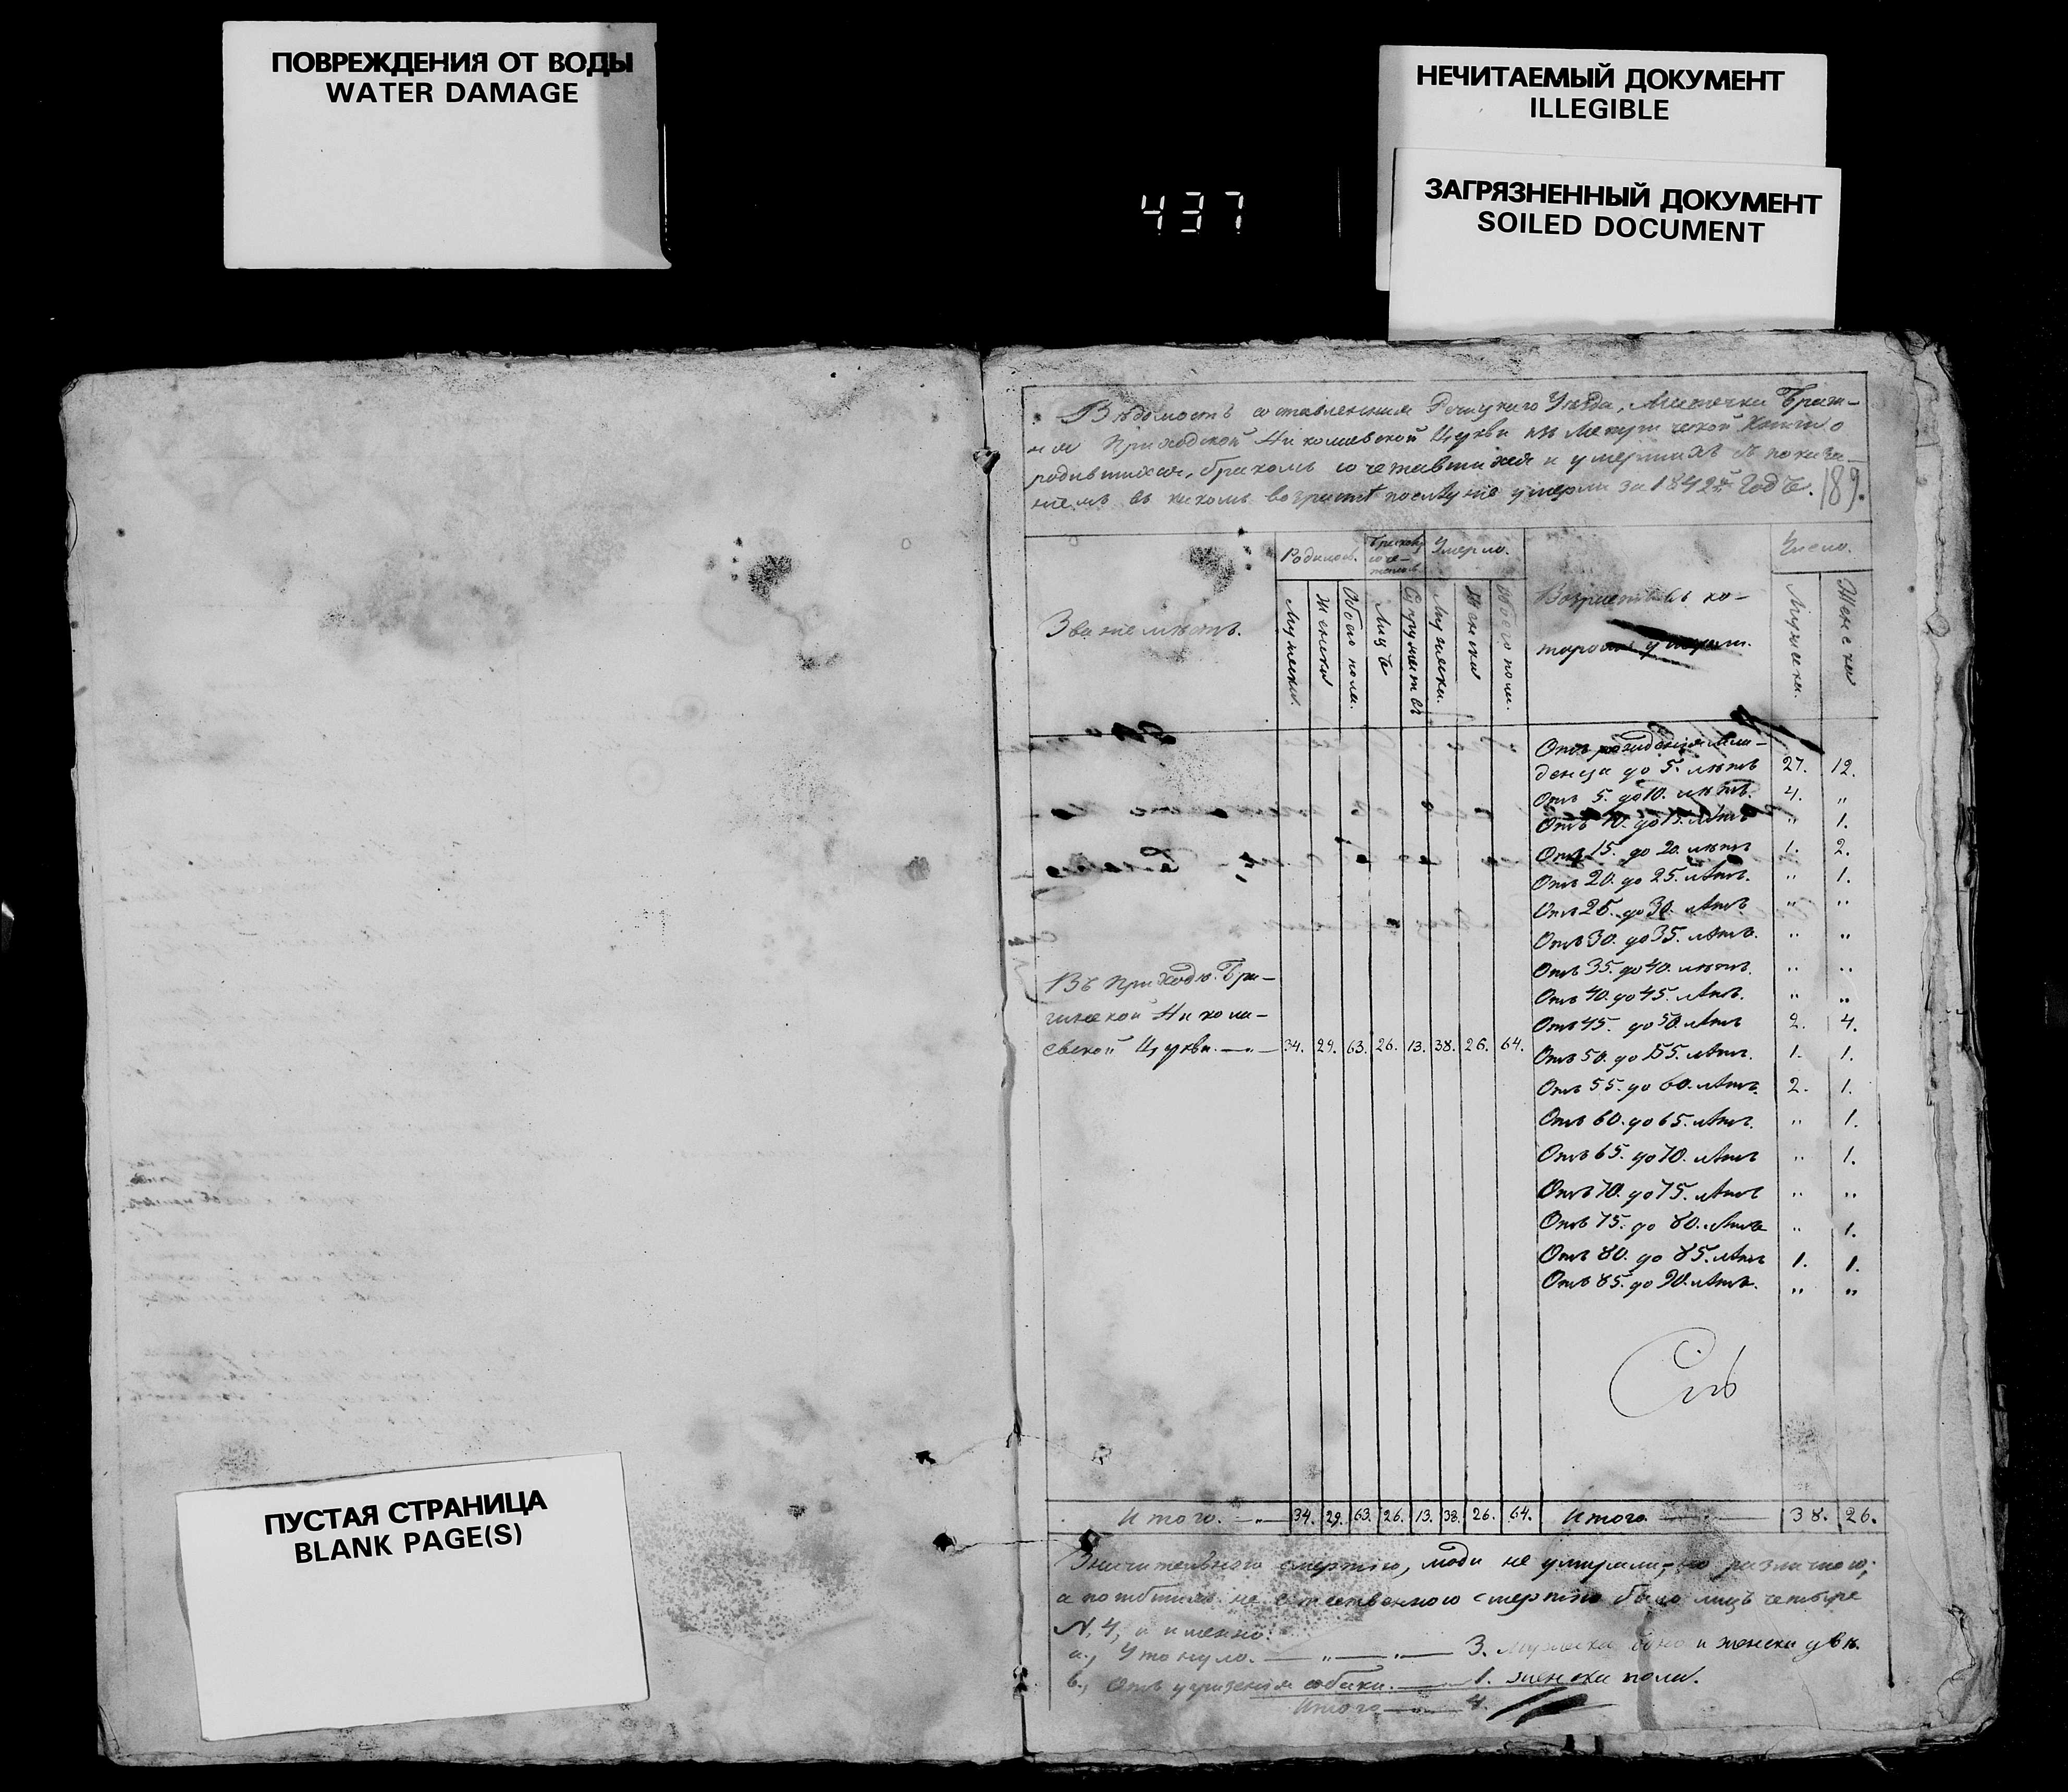 ПОВРЕЖДЕНИЯ ОТ ВОДЫ
WATER DAMAGE
НЕЧИТАЕМЫЙ ДОКУМЕНТ
ILLEGIBLE
437
ЗАГРЯЗНЕННЫЙ ДОКУМЕНТ
SOILED DOCUMENT
Вѣдомость составленная Рѣчицкаго Уѣзда, Мѣстечка Браги-
на Приходской Николаевской Церкви изъ Метрической Книги о
родившихся, бракомъ сочетавшихся и умершихъ съ показа-
ніемъ въ какомъ возрастѣ послѣдніе умерли за 1842й Годъ.
189.
Званіе мѣстъ.
Родилось.
Бракомъ
соче-
талось
Умерло.
Возрастъ въ ко-
торомъ умерли.
Число.
Мужеска.
Женска
Обоего пола.
Лицъ
Супружествъ
Мужеска.
Женска
Обоего пола.
Мужеска.
Женска
Отъ рожденія мла-
денца до 5. лѣтъ 27. 12.
Отъ 5. до 10. лѣтъ. 4. „
Отъ 10. до 15. лѣтъ „ 1.
Отъ 15. до 20. лѣтъ 1. 2.
Отъ 20. до 25. лѣтъ. „ 1.
Отъ 25. до 30. лѣтъ „ „
Отъ 30. до 35. лѣтъ. „ „
Отъ 35. до 40. лѣтъ. „ „
Отъ 40. до 45. лѣтъ. „ „
Отъ 45. до 50. лѣтъ 2. 4.
Отъ 50. до 55. лѣтъ. 1. 1.
Отъ 55. до 60. лѣтъ. 2. 1.
Отъ 60. до 65. лѣтъ. „ 1.
Отъ 65. до 70. лѣтъ „ 1.
Отъ 70. до 75. лѣтъ „ „
Отъ 75. до 80. лѣтъ „ 1.
Отъ 80. до 85. лѣтъ 1. 1.
Отъ 85. до 90. лѣтъ. „ „
Въ Приходѣ Бра-
гинской Никола-
евской Церкви. —„— 34. 29. 63. 26. 13. 38. 26. 64.
Итого. —„— 34. 29. 63. 26. 13. 38. 26. 64. Итого — 38. 26.
смертію, люди не умирали,
а не естественною смертію было лицъ четыре
N. 4, а именно:
а., Утонуло. —„—„— 3. женска двѣ.
в., Отъ собаки. — 1. женска пола.
Итого —„— 4.
ПУСТАЯ СТРАНИЦА
BLANK PAGE(S)